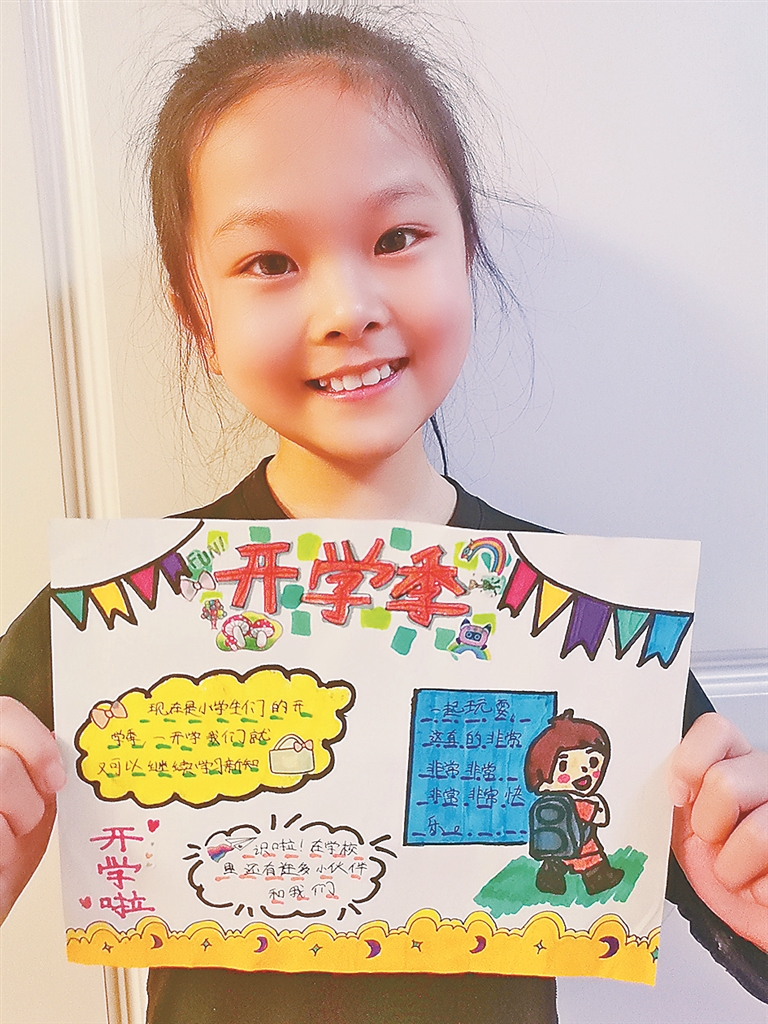 FUN!
开学季
现在是小学生们的开
学季,一开学我们就
又可以继续学习新知
识啦!在学校
里还有许多小伙伴
和我们
一起玩耍
这真的非常
非常非常
非常非常快
乐。
开学啦